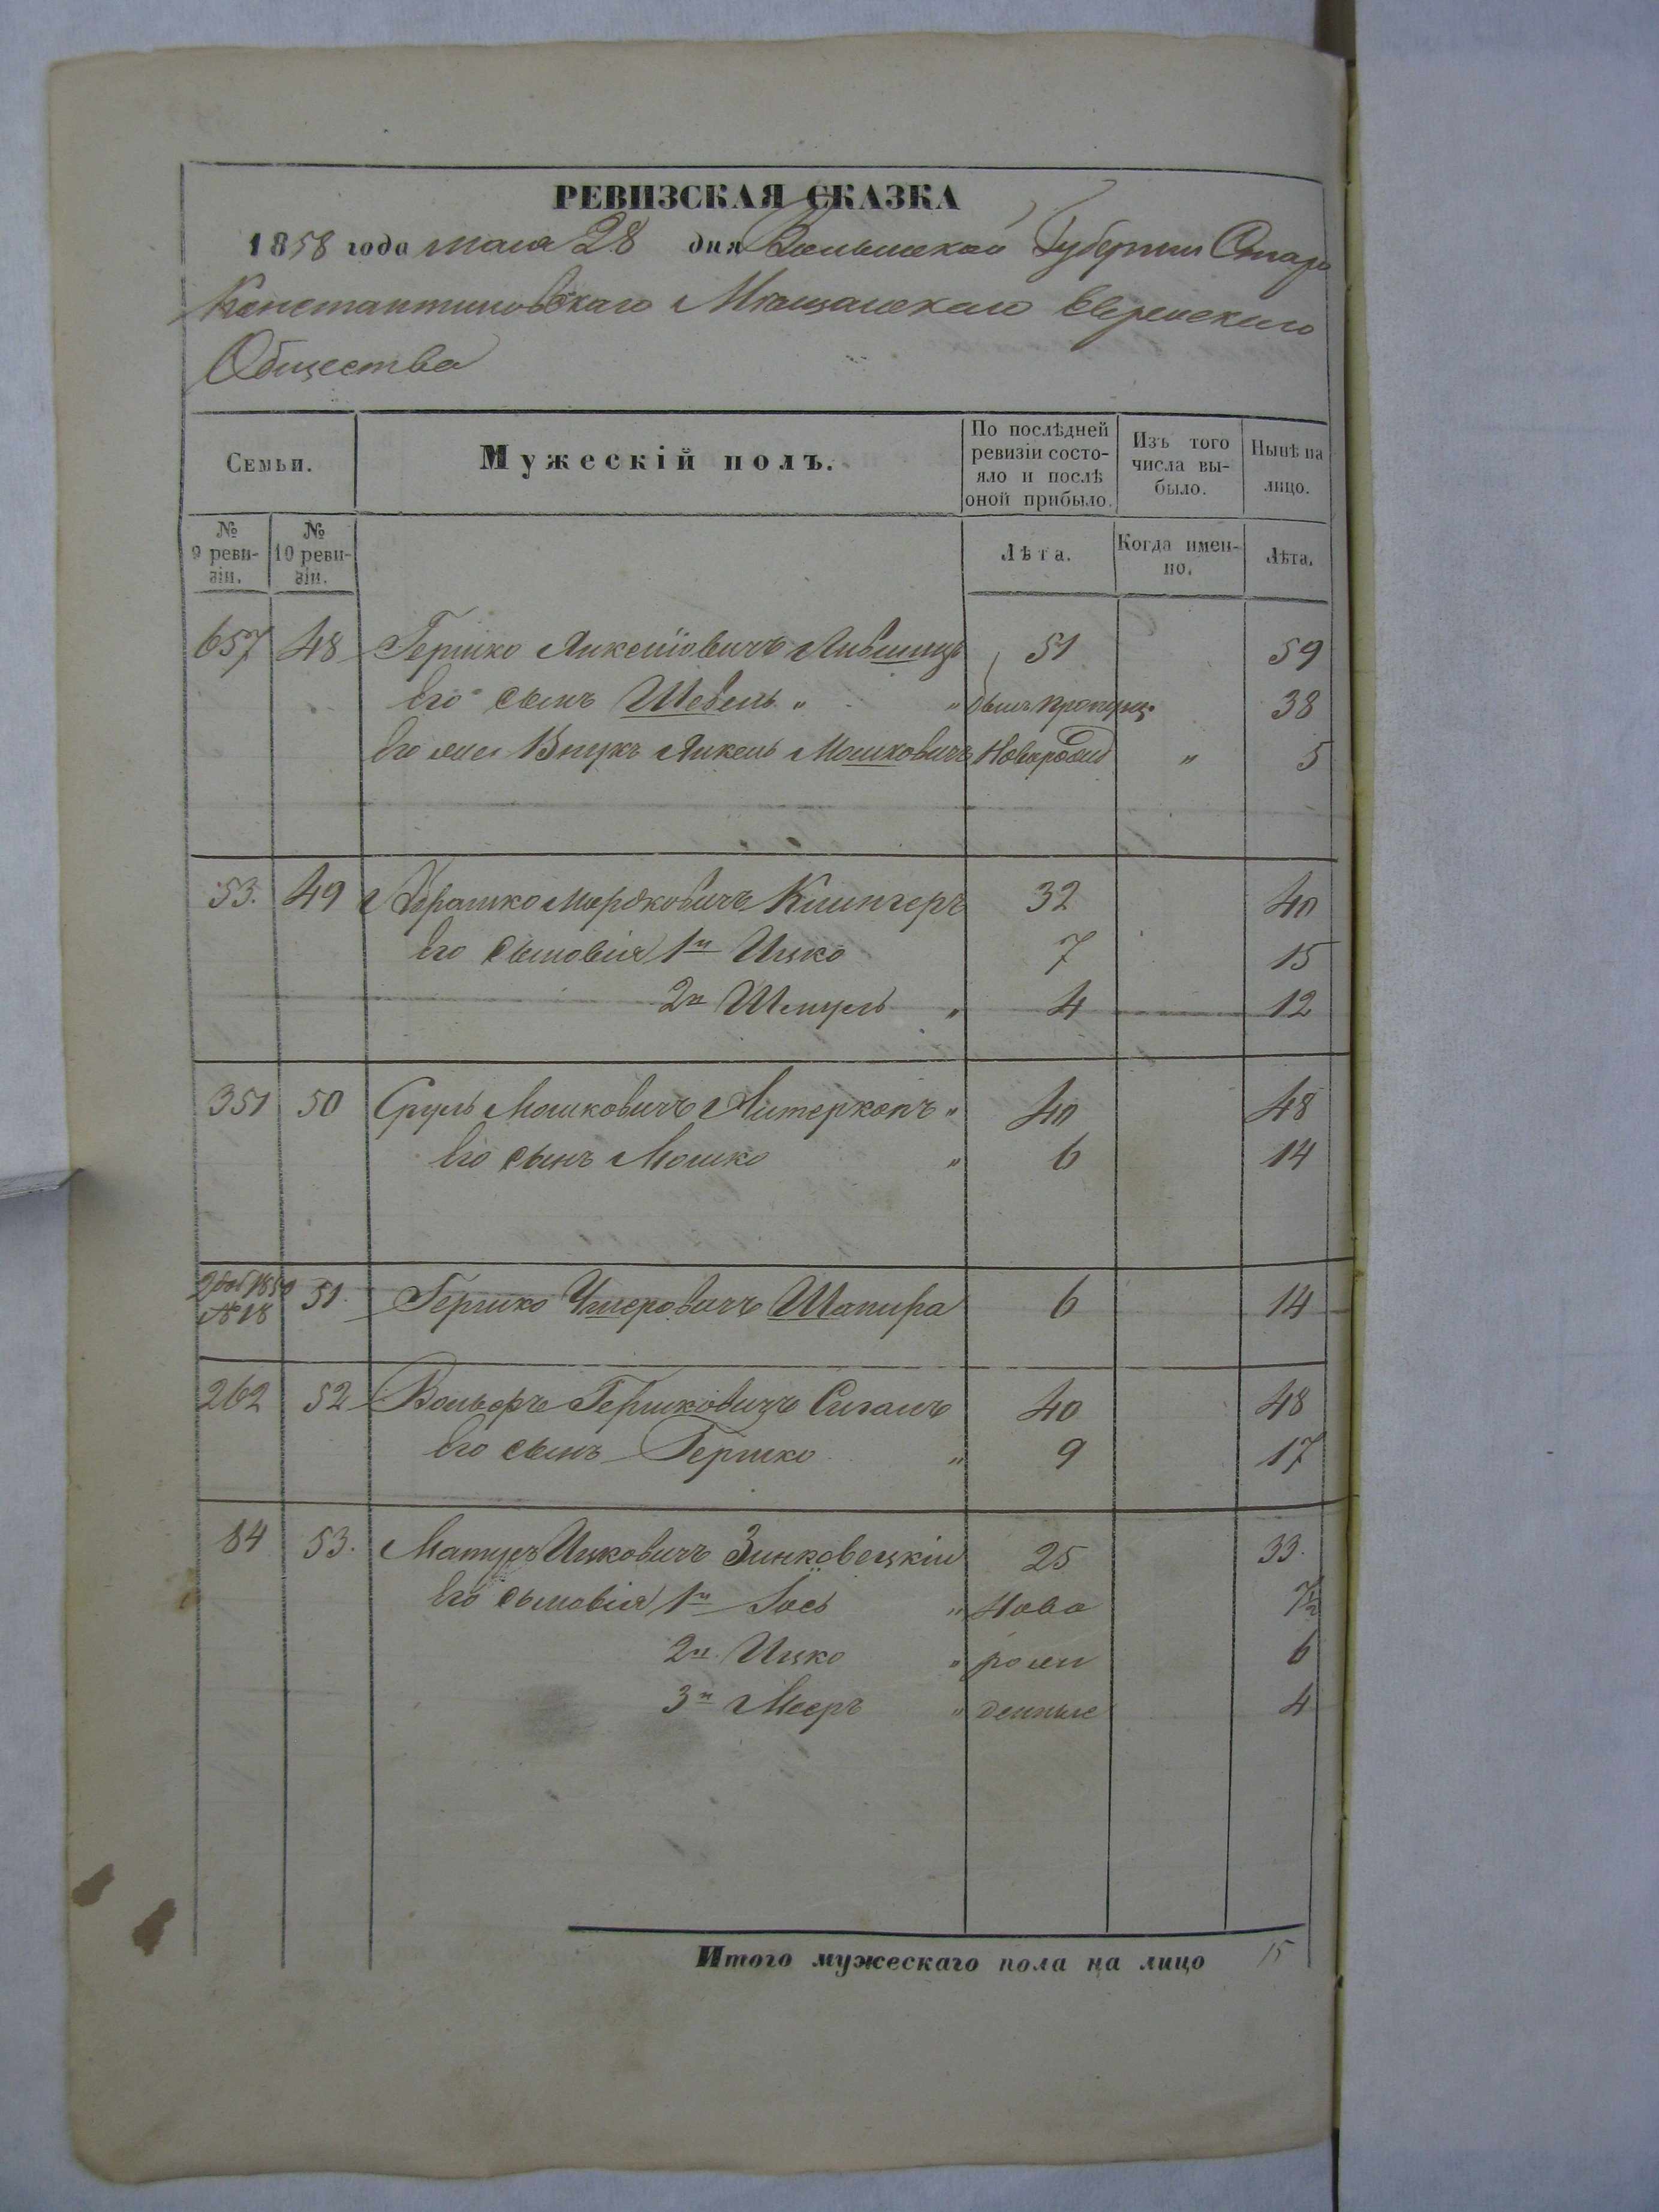 РЕВИЗСКАЯ СКАЗКА
1858 года мая 28 дня Волынской Губернии Старо
Константиновскаго Мѣщанскаго Еврейскаго
Общества
Семьи.
Мужескій полъ.
По послѣдней ревизіи состояло и послѣ оной прибыло.
Изъ того числа выбыло.
Нынѣ на лицо.
№ 9 ревизіи.
№ 10 ревизіи.
Лѣта.
Когда именно.
Лѣта.
657 48 Гершко Янкеліовичъ Лившицъ 51 59
Его сынъ Шевель " " былъ пропущ. 38
Его же Внукъ Янкель Мошковичъ Новорожд " 5
53. 49 Абрамко Мордковичъ Клингеръ 32 40
Его сыновія 1й Ицко 7 15
2й Шмуль " 4 12
351 50 Сруль Мошковичъ Литеркопъ " 40 48
Его сынъ Мошко " 6 14
2 доп 1850 № 18 51. Гершко Умеровичъ Шапира 6 14
262 52 Вольфъ Гершковичъ Сиганъ 40 48
Его сынъ Гершко " 9 17
84 53. Матусъ Ицковичъ Зинковецкій 25 33.
Его сыновія 1й Іось " Ново 7½
2й Ицко " рож 6
3й Мееръ " денные 4
Итого мужескаго пола на лицо 15